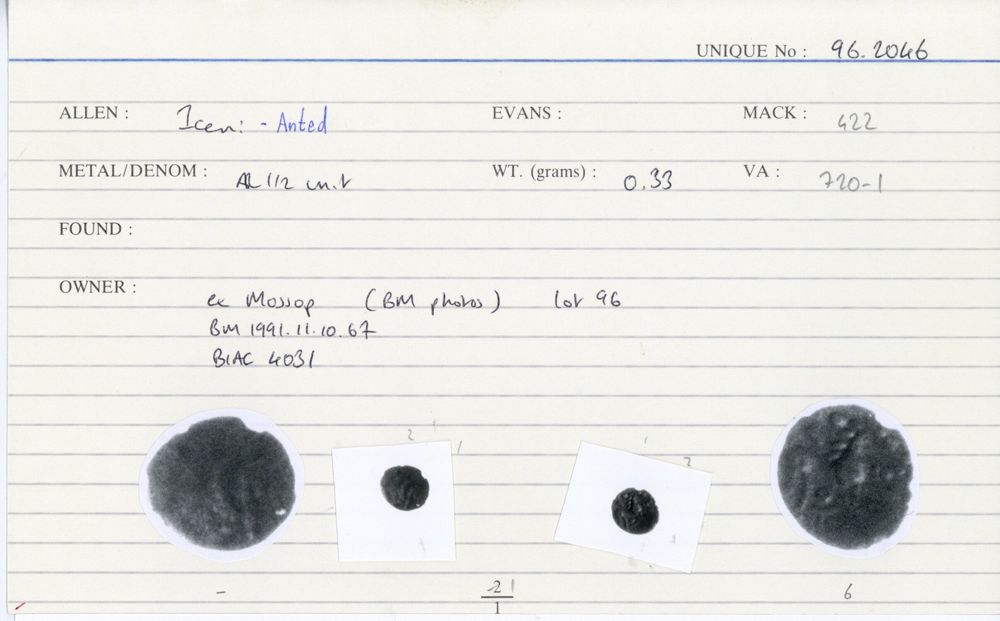 UNIQUE No : 96.2046
ALLEN : Iceni - Anted EVANS : MACK : 422
METAL/DENOM : AR 1/2 unit WT. (grams) : 0.33 VA : 720-1
FOUND :
OWNER : ex Mossop (BM photos) lot 96
BM 1991.11.10.67
BIAC 4031
2 1 1
1 2
- 21 6
1